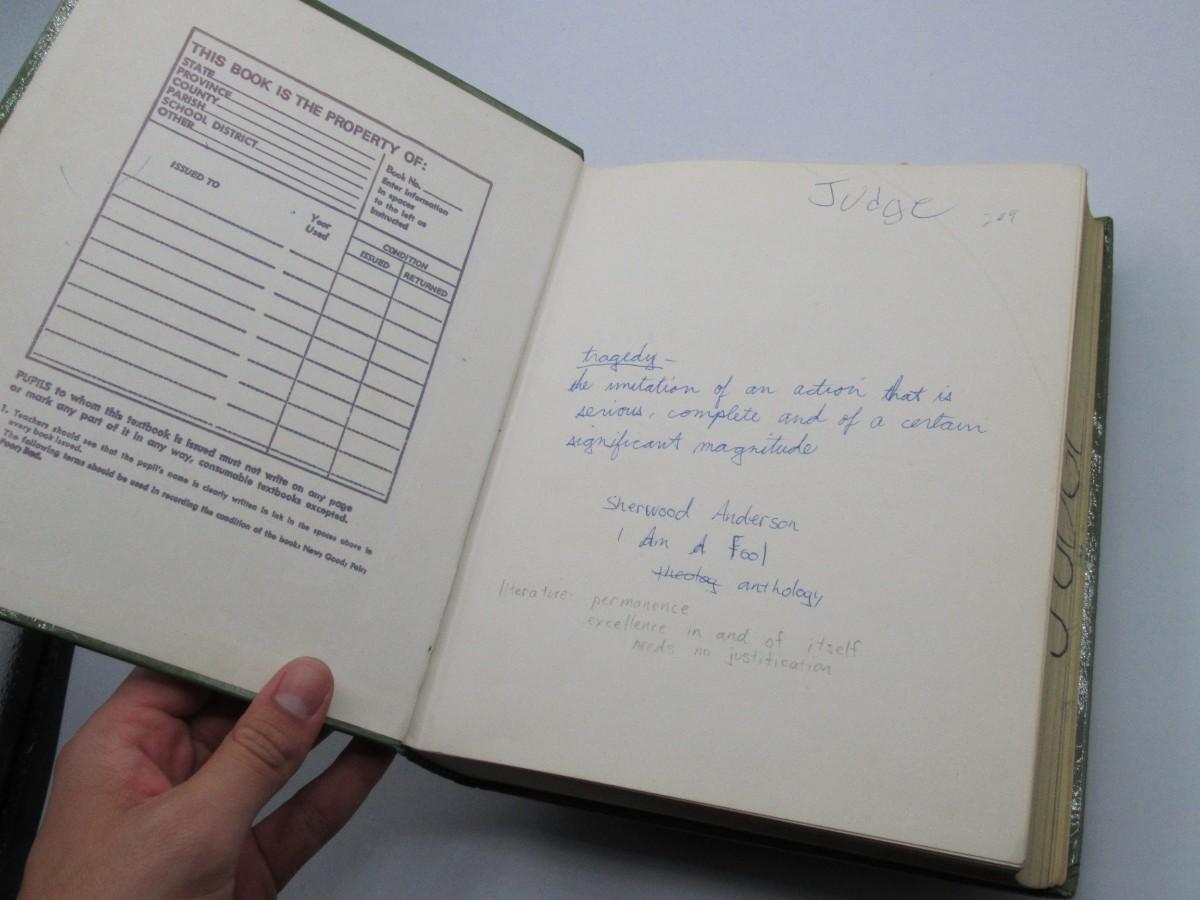 THIS BOOK IS THE PROPERTY OF:
STATE
PROVINCE
COUNTY
PARISH
SCHOOL DISTRICT
OTHER
Book No.
Enter information
in spaces
to the left as
instructed
ISSUED TO
Year
Used
CONDITION
ISSUED
RETURNED
PUPILS to whom this textbook is issued must not write on any page
or mark any part of it in any way, consumable textbooks excepted.
1. Teachers should see that the pupil's name is clearly written in ink in the spaces above in
every book issued.
The following terms should be used in recording the condition of the book: New; Good; Fair;
Poor; Bad.
Judge
tragedy -
the imitation of an action that is
serious, complete and of a certain
significant magnitude
Sherwood Anderson
I Am A Fool
theolog anthology
literature - permanence
excellence in and of itself
needs no justification